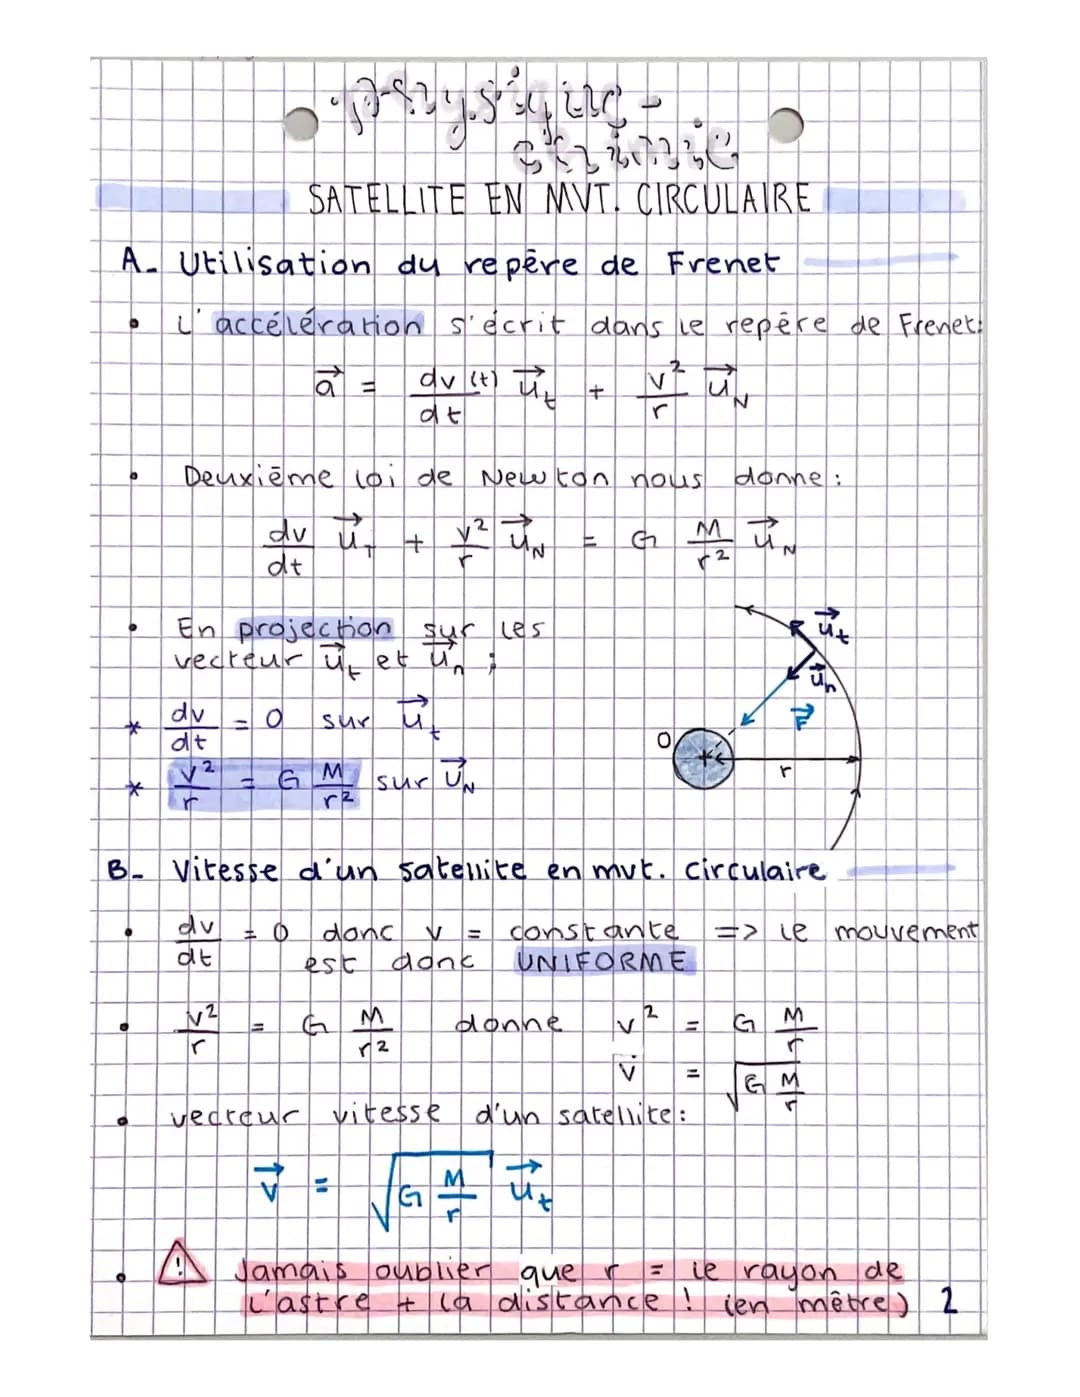 SATELLITE EN MVT. CIRCULAIRE
A- Utilisation du repère de Frenet
• L'accélération s'écrit dans le repère de Frenet:
a⃗ = dv(t)/dt u⃗t + v²/r u⃗N
• Deuxième loi de Newton nous donne :
dv/dt u⃗T + v²/r u⃗N = G M/r² u⃗N
• En projection sur les
vecteur u⃗t et u⃗n ;
* dv/dt = 0 sur u⃗t
* v²/r = G M/r² sur u⃗N
u⃗t
u⃗n
F⃗
O
r
B- Vitesse d'un satellite en mvt. circulaire
• dv/dt = 0 donc v = constante => le mouvement
est donc UNIFORME
• v²/r = G M/r² donne v² = G M/r
v = √(G M/r)
• vecteur vitesse d'un satellite:
v⃗ = √(G M/r) u⃗t
• ⚠ Jamais oublier que r = le rayon de
l'astre + la distance ! (en mètre) 2